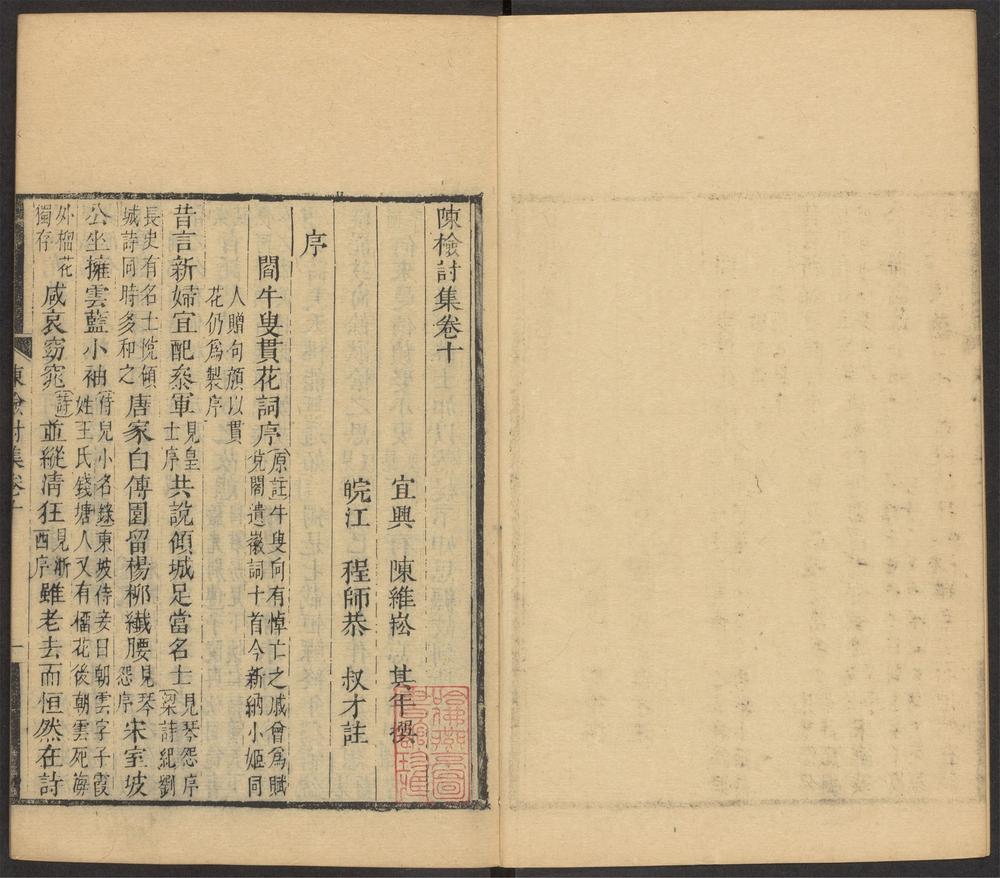 陳檢討集卷十
宜興 陳維崧 其年 撰
皖江 程師恭 叔才 註
序
閻牛叟貫花詞序
原註牛叟向有悼亡之戚曾爲賦
党閣遺徽詞十首今新納小姬同
人贈句頎以貫
花仍爲製序
昔言新婦宜配叅軍
見皇
士序
共說傾城足當名士
見琴怨序
梁詩紀劉
長史有名士悅傾
城詩同時多和之
唐家白傅園留楊柳纖腰
見琴
怨序
宋室坡
公坐擁雲藍小袖
侍兒小名錄東坡侍妾曰朝雲字子霞
姓王氏錢塘人又有榴花後朝雲死海
外榴花
獨存
咸哀窈窕
詩
並縱清狂
見浙
西序
雖老去而恒然在詩
陳檢討集 卷十 一